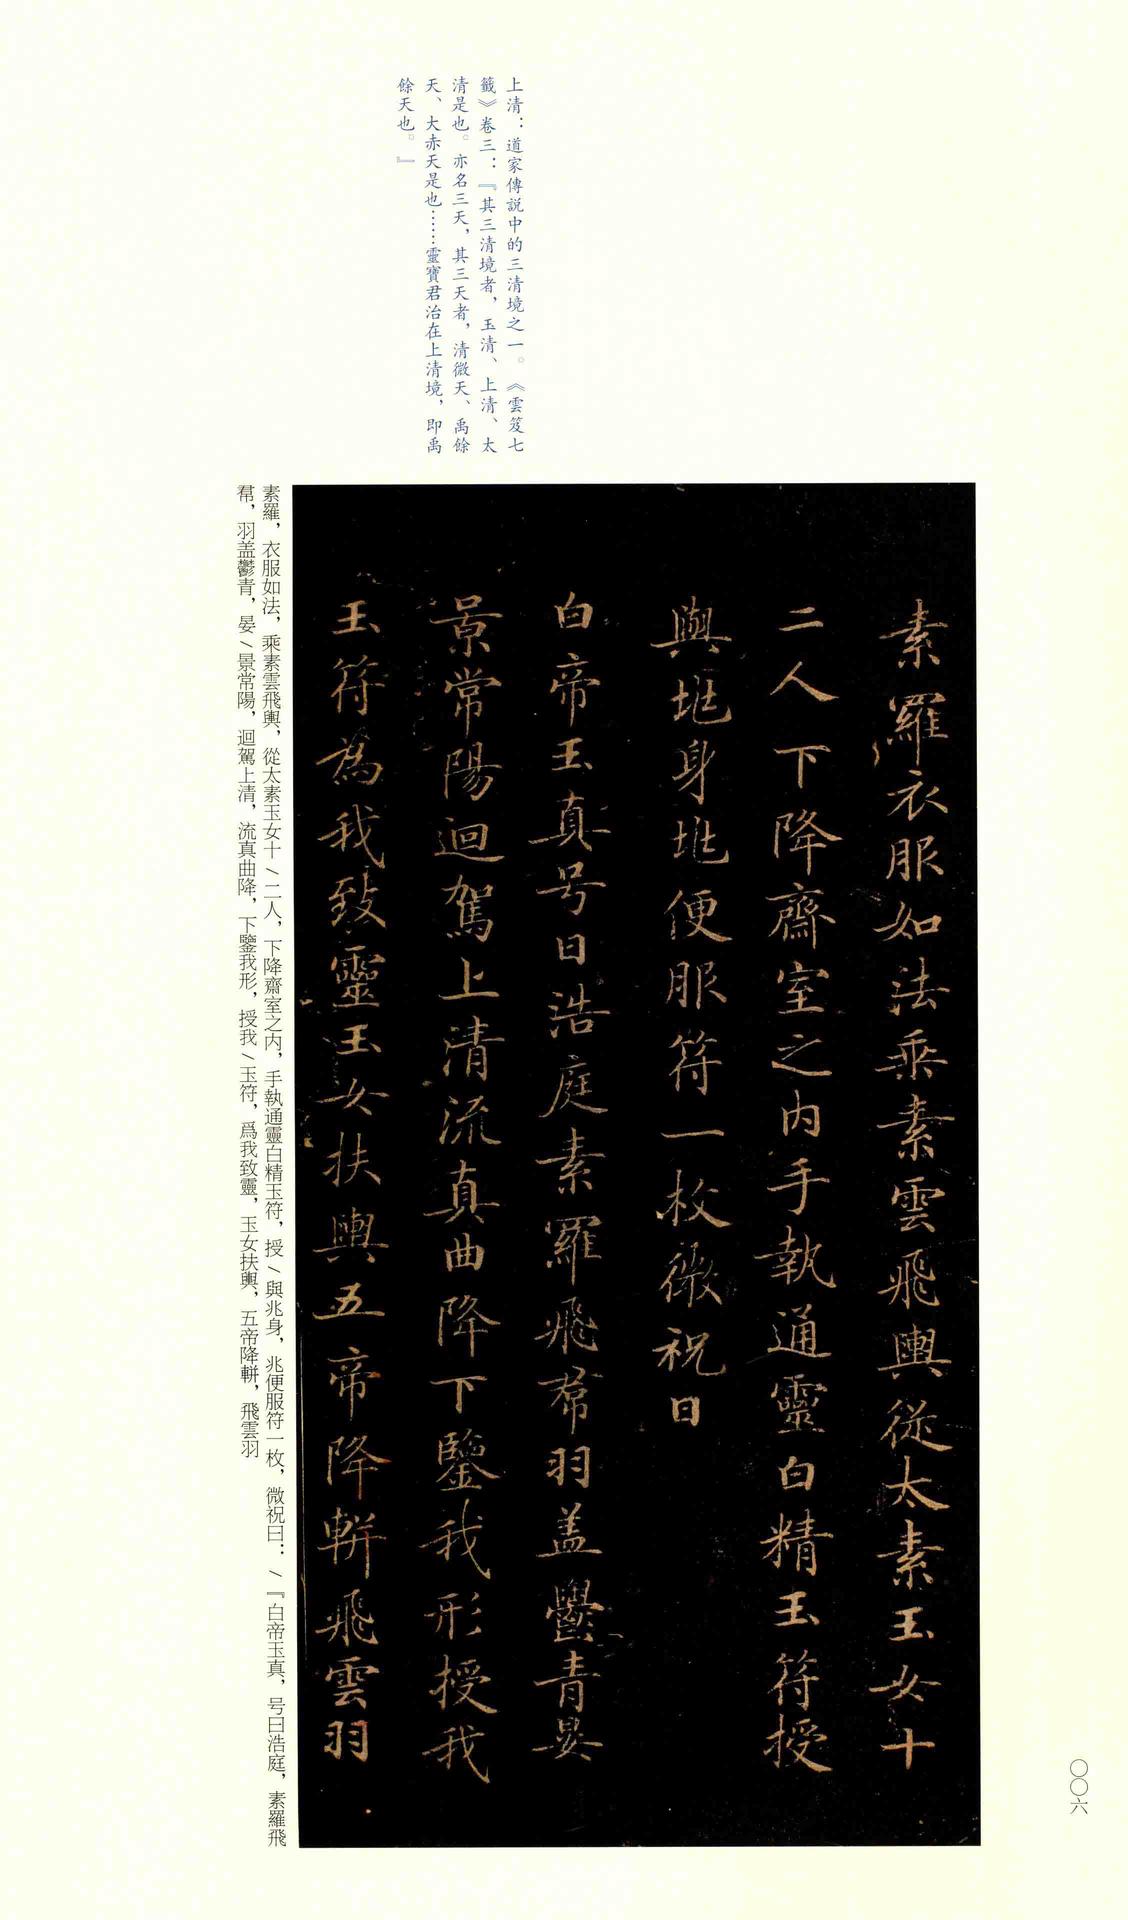 上清：道家傳説中的三清境之一。《雲笈七
籤》卷三：『其三清境者，玉清、上清、太
清是也。亦名三天，其三天者，清微天、禹餘
天、大赤天是也……靈寶君治在上清境，即禹
餘天也。』
素羅衣服如法乘素雲飛輿從太素玉女十
二人下降齋室之内手執通靈白精玉符授
與兆身兆便服符一枚微祝曰
白帝玉真号曰浩庭素羅飛帬羽盖鬱青晏
景常陽迴駕上清流真曲降下鑒我形授我
玉符為我致靈玉女扶輿五帝降軿飛雲羽
素羅，衣服如法，乘素雲飛輿，從太素玉女十／二人，下降齋室之内，手執通靈白精玉符，授／與兆身，兆便服符一枚，微祝曰：／『白帝玉真，号曰浩庭，素羅飛
帬，羽盖鬱青，晏／景常陽，迴駕上清，流真曲降，下鑒我形，授我／玉符，爲我致靈，玉女扶輿，五帝降軿，飛雲羽
〇〇六